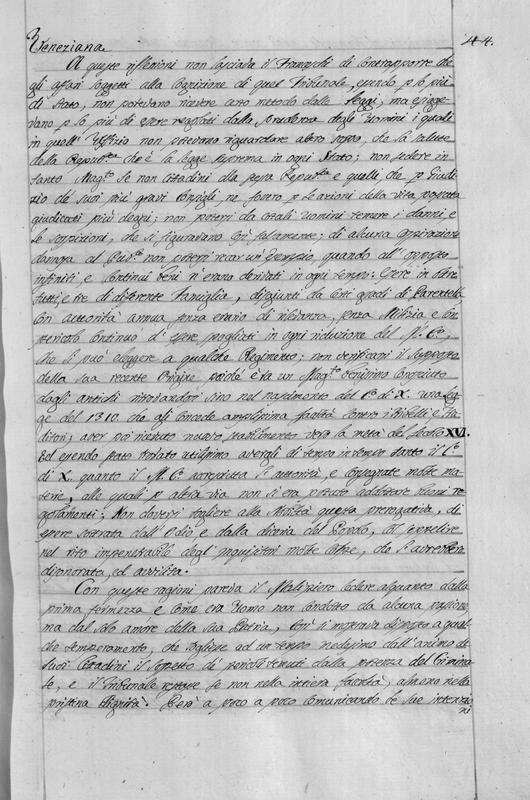 44.
Veneziana.
A queste riflessioni non lasciava il Franceschi di contrapporre che
gli affari soggetti alla cognizione di quel Tribunale, essendo p lo più
di Stato, non potevano ricevere certo metodo dalle Leggi, ma esigge-
vano p lo più di essere regolati dalla prudenza degli Uomini i quali
in quell' Uffizio non potevano riguardare altro scopo, che la salute
della Repub.ca che è la legge suprema in ogni Stato; non sedere in
tanto Mag.to se non Cittadini della stessa Repub.ca e quelli che p Giudi-
zio de' suoi più gravi Consigli, ne fossero p le azioni della vita passata
giudicati più degni; non potersi da cotali Uomini temere i danni e
le oppressioni, che si figuravano così falsamente; di alcuna operazione
dannosa al non potersi recar un' esempio, quando all' opposto
infiniti e continui beni n' erano derivati in ogni tempo. Essere in oltre
tutti e tre di differente Famiglia, disgiunti da certi gradi di Parentella
con autorità annua senza erario di ricchezza, senza Milizia e con
pericolo continuo d' essere spogliati in ogni riduzione del M. C.,
che li può eleggere a qualche Regimento; non verificarsi il supposto
della sua recente Origine, poichè era un Mag.to benissimo conosciuto
dagli antichi ritrovandosi sino nel nascimento del C. di X. una leg-
ge del 1310. che gli concede amplissima facoltà contro i Ribelli e Tra-
ditori; aver poi ricevuto nuovo stabilimento verso la metà del secolo XVI.
ed essendo stato trovato utilissimo avergli di tempo in tempo tanto il C.
di X. quanto il M. C. accresciuta l' autorità, e consegnate molte ma-
terie, alle quali p altra via non si era potuto additare buoni re-
golamenti; Non doversi togliere alla Nobiltà questa prerogativa, di
essere sottratta dall' Odio e dalla diceria del Popolo, col seppelire
nel rito impenetrabile degl' Inquisitori molte colpe, che l' avrebbero
disonorata, ed avvilita.
Con queste ragioni pareva il Malipiero cedere alquanto dalla
prima fermezza e come era Uomo non condotto da alcuna passione
ma dal solo amore della sua Patria, così si mostrava disposto a qual-
che temperamento, che togliesse ad un tempo medesimo dall' animo de
suoi Cittadini il sospetto de' pericoli temuti dalla potenza del Crimina-
le, e il Tribunale restasse se non nella intiera facoltà, almeno nella
pristina dignità. Però a poco a poco comunicando le sue intenzio
ni